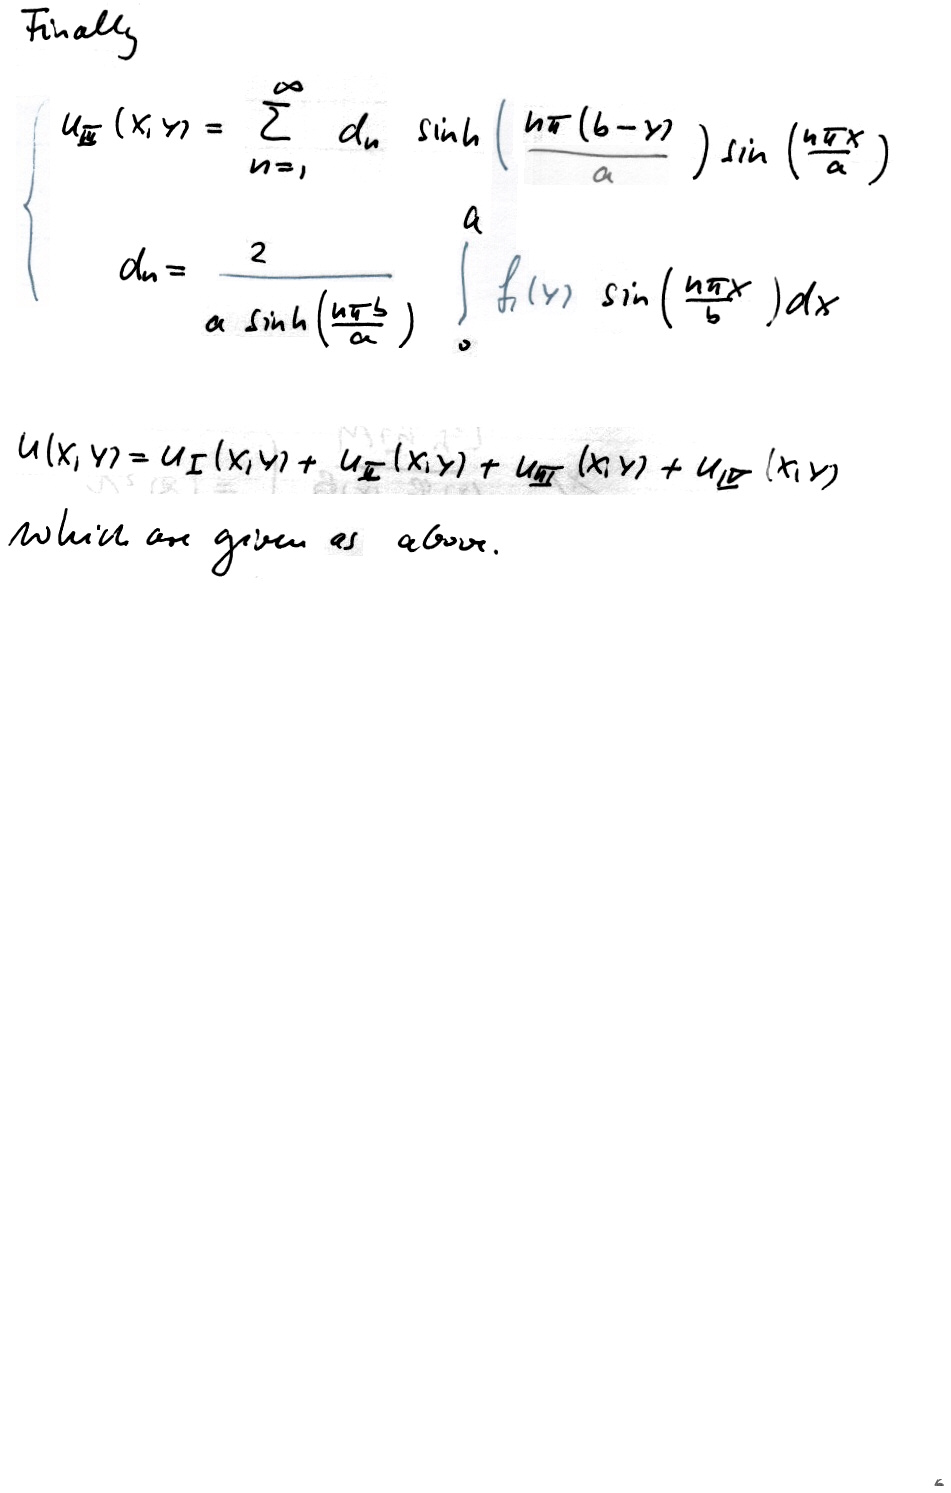 Finally
u_III (x, y) = ∑_{n=1}^{∞} d_n sinh ( nπ(b-y) / a ) sin ( nπx / a )
d_n = 2 / ( a sinh ( nπb / a ) ) ∫_0^a f_1(y) sin ( nπx / b ) dx
u(x, y) = u_I (x, y) + u_II (x, y) + u_III (x, y) + u_IV (x, y)
which are given as above.